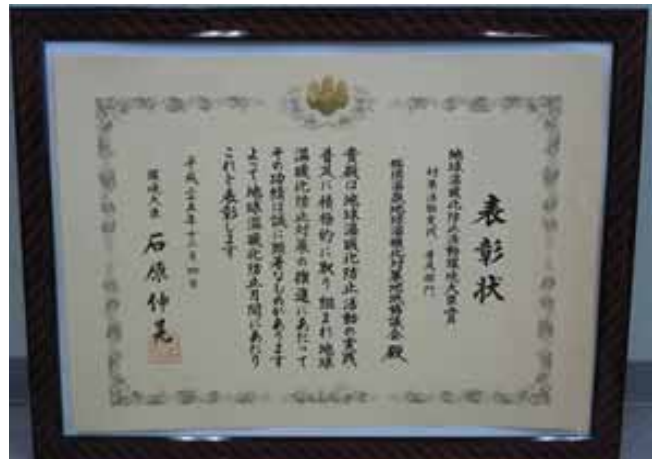 表彰状
地球温暖化防止活動環境大臣表彰
対策活動実践・普及部門
温泉地球温暖化対策地域協議会 殿
貴殿は地球温暖化防止活動の実践
普及に積極的に取り組まれ地球
温暖化防止対策の推進にあたって
その功績は誠に顕著なものがあります
よって地球温暖化防止月間にあたり
これを表彰します
平成二十五年十二月四日
環境大臣 石原伸晃